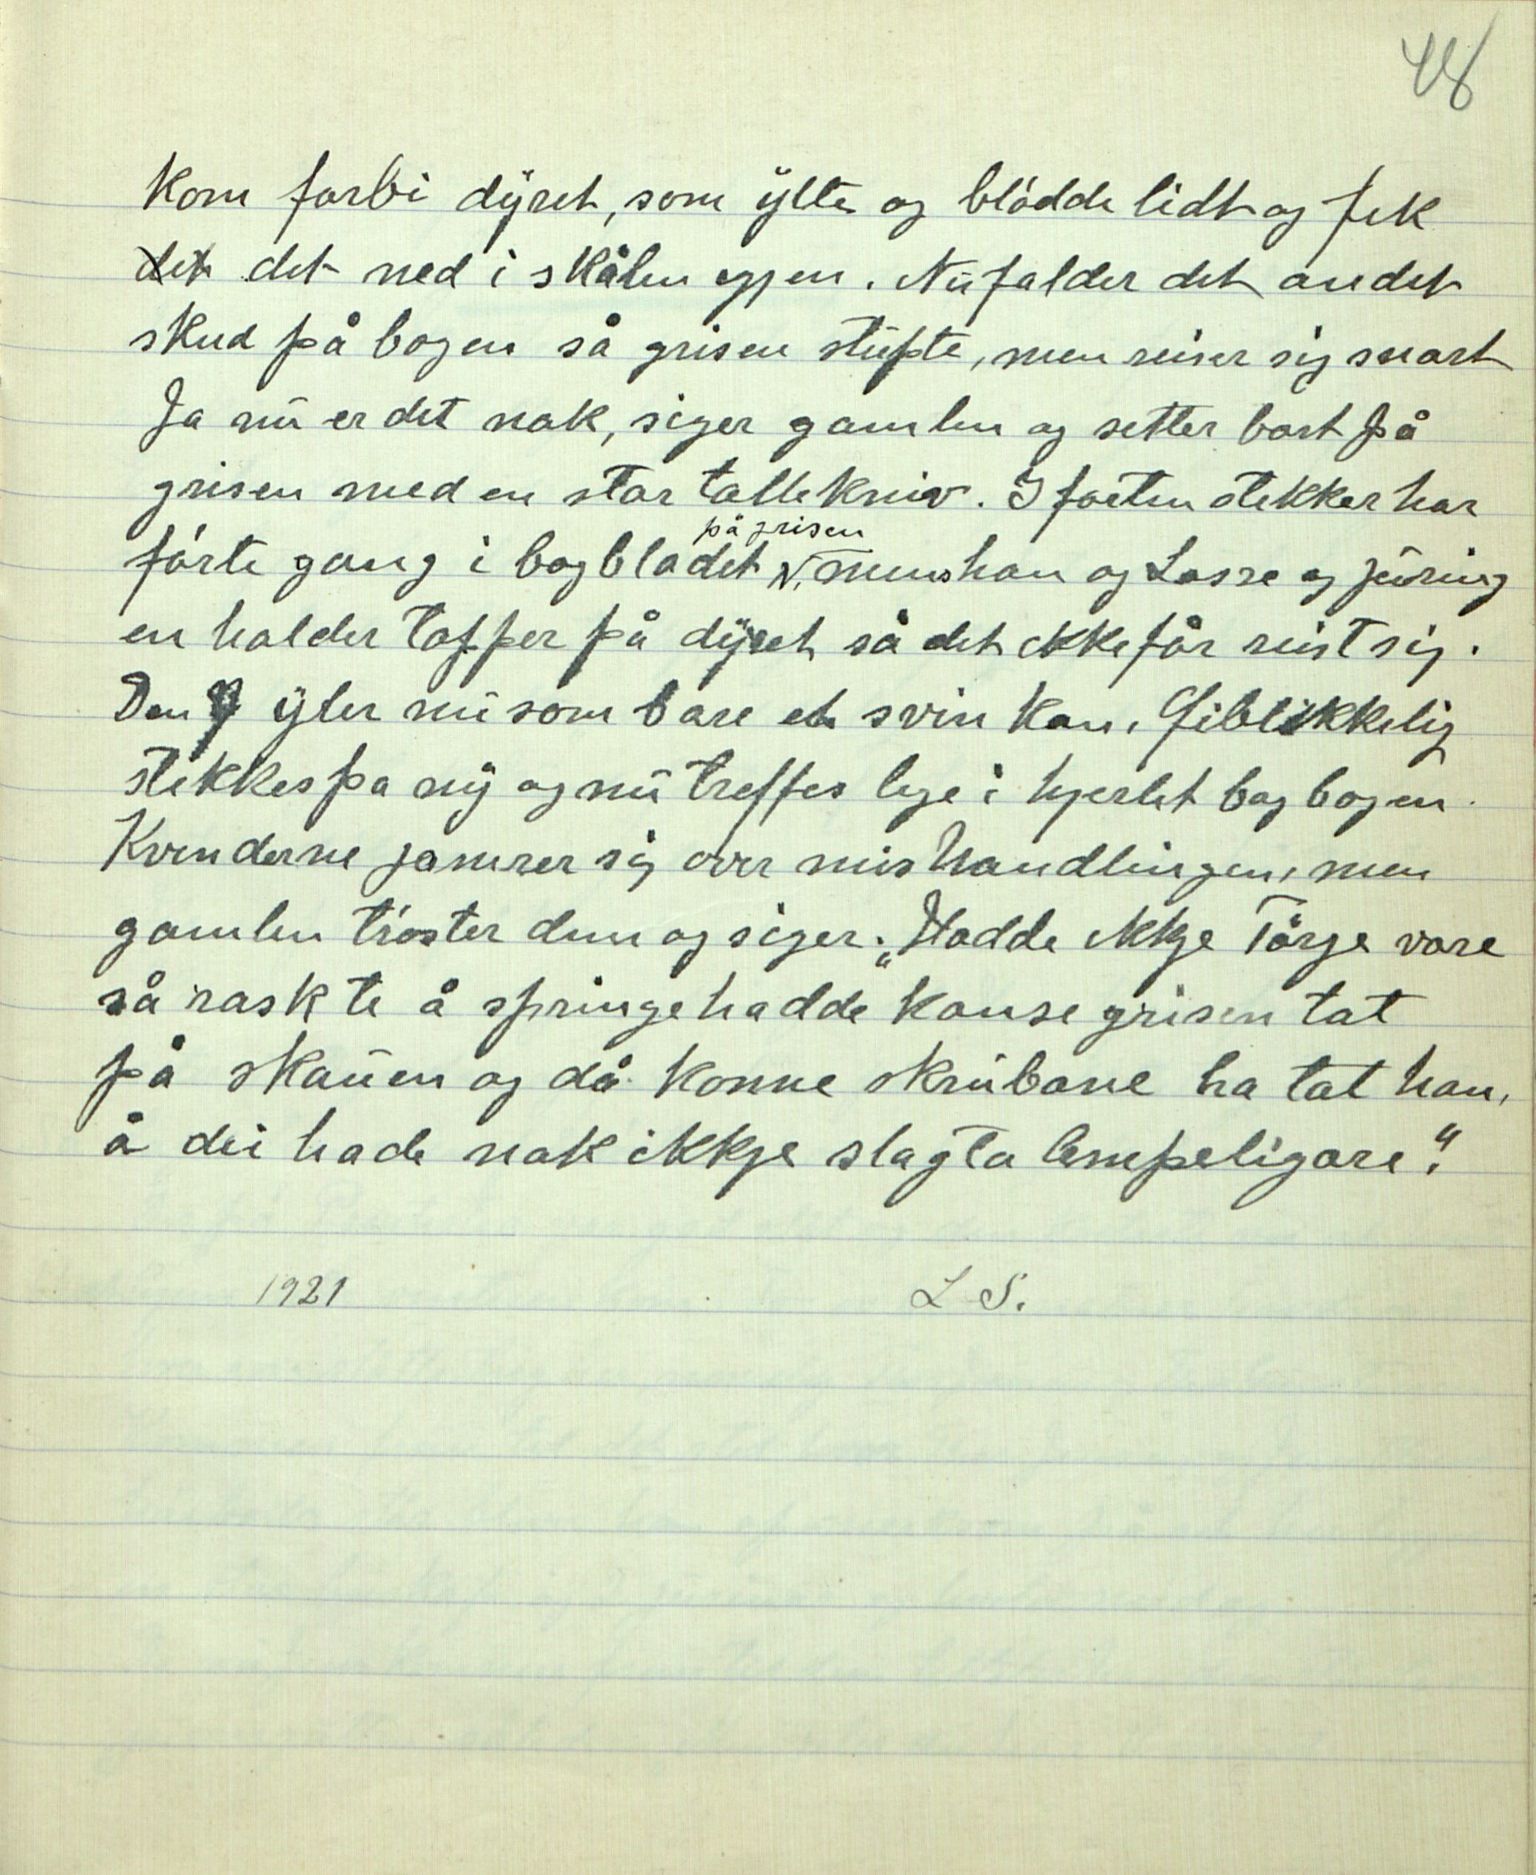 48
kom forbi dyret, som ylte og blödde lidt og fek
det det ned i skålen igjen. Nu falder det andet
skud på bogen så grisen stupte, men reiser sig snart
Ja nu er det nok, siger gamlen og setter bort på
grisen med en stor tollekniv. I farten stekker han
förte gang i bogbladet på grisen, mens han og Lasse og
en holder tapper på dyret så det ikke får reist sig.
Den yler nu som bare et svin kan.
stekkes pa ny og nu treffes lige i hjertet bag bogen.
Kvinderne jamrer sig over mishandlingen, men
gamlen tröster dem og siger: „Hadde ikkje Törje vore
så rask te å springe hadde kanse grisen tat
på skauen og då konne skrubane ha tat han,
å dei hade nok ikkje slagta lempeligare."
1921 L. S.